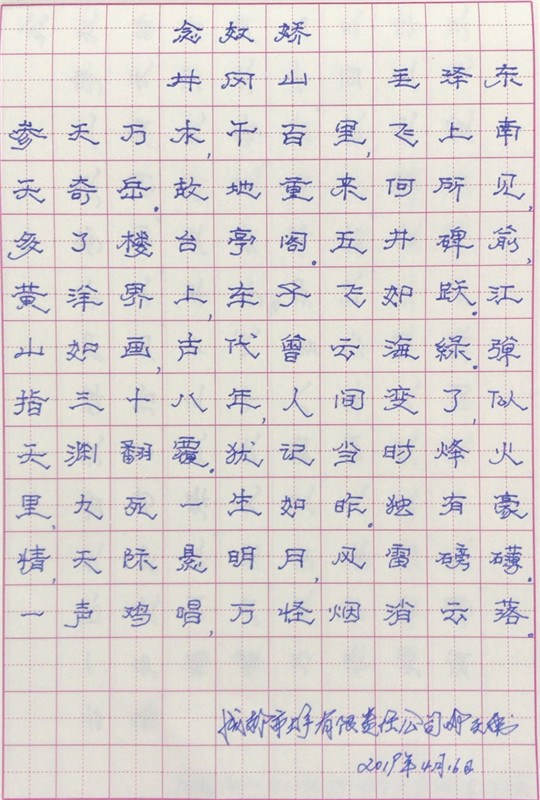 念奴娇
井冈山 毛泽东
参天万木,千百里,飞上南
天奇岳。故地重来何所见,
多了楼台亭阁。五井碑前,
黄洋界上,车子飞如跃。江
山如画,古代曾云海绿。弹
指三十八年,人间变了,似
天渊翻覆。犹记当时烽火
里,九死一生如昨。独有豪
情,天际悬明月,风雷磅礴。
一声鸡唱,万怪烟消云落。
有限责任公司
2019年4月16日